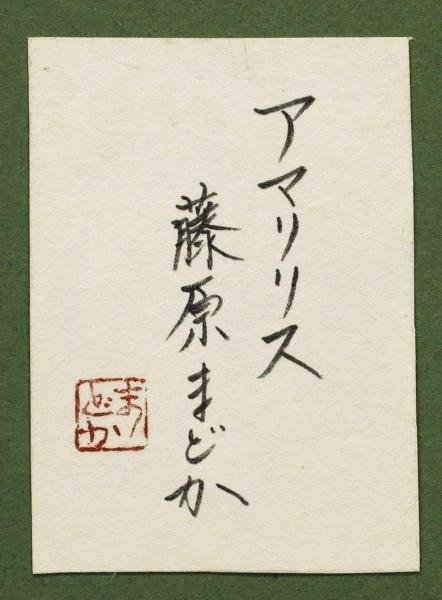 アマリリス
藤原まどか
まどか